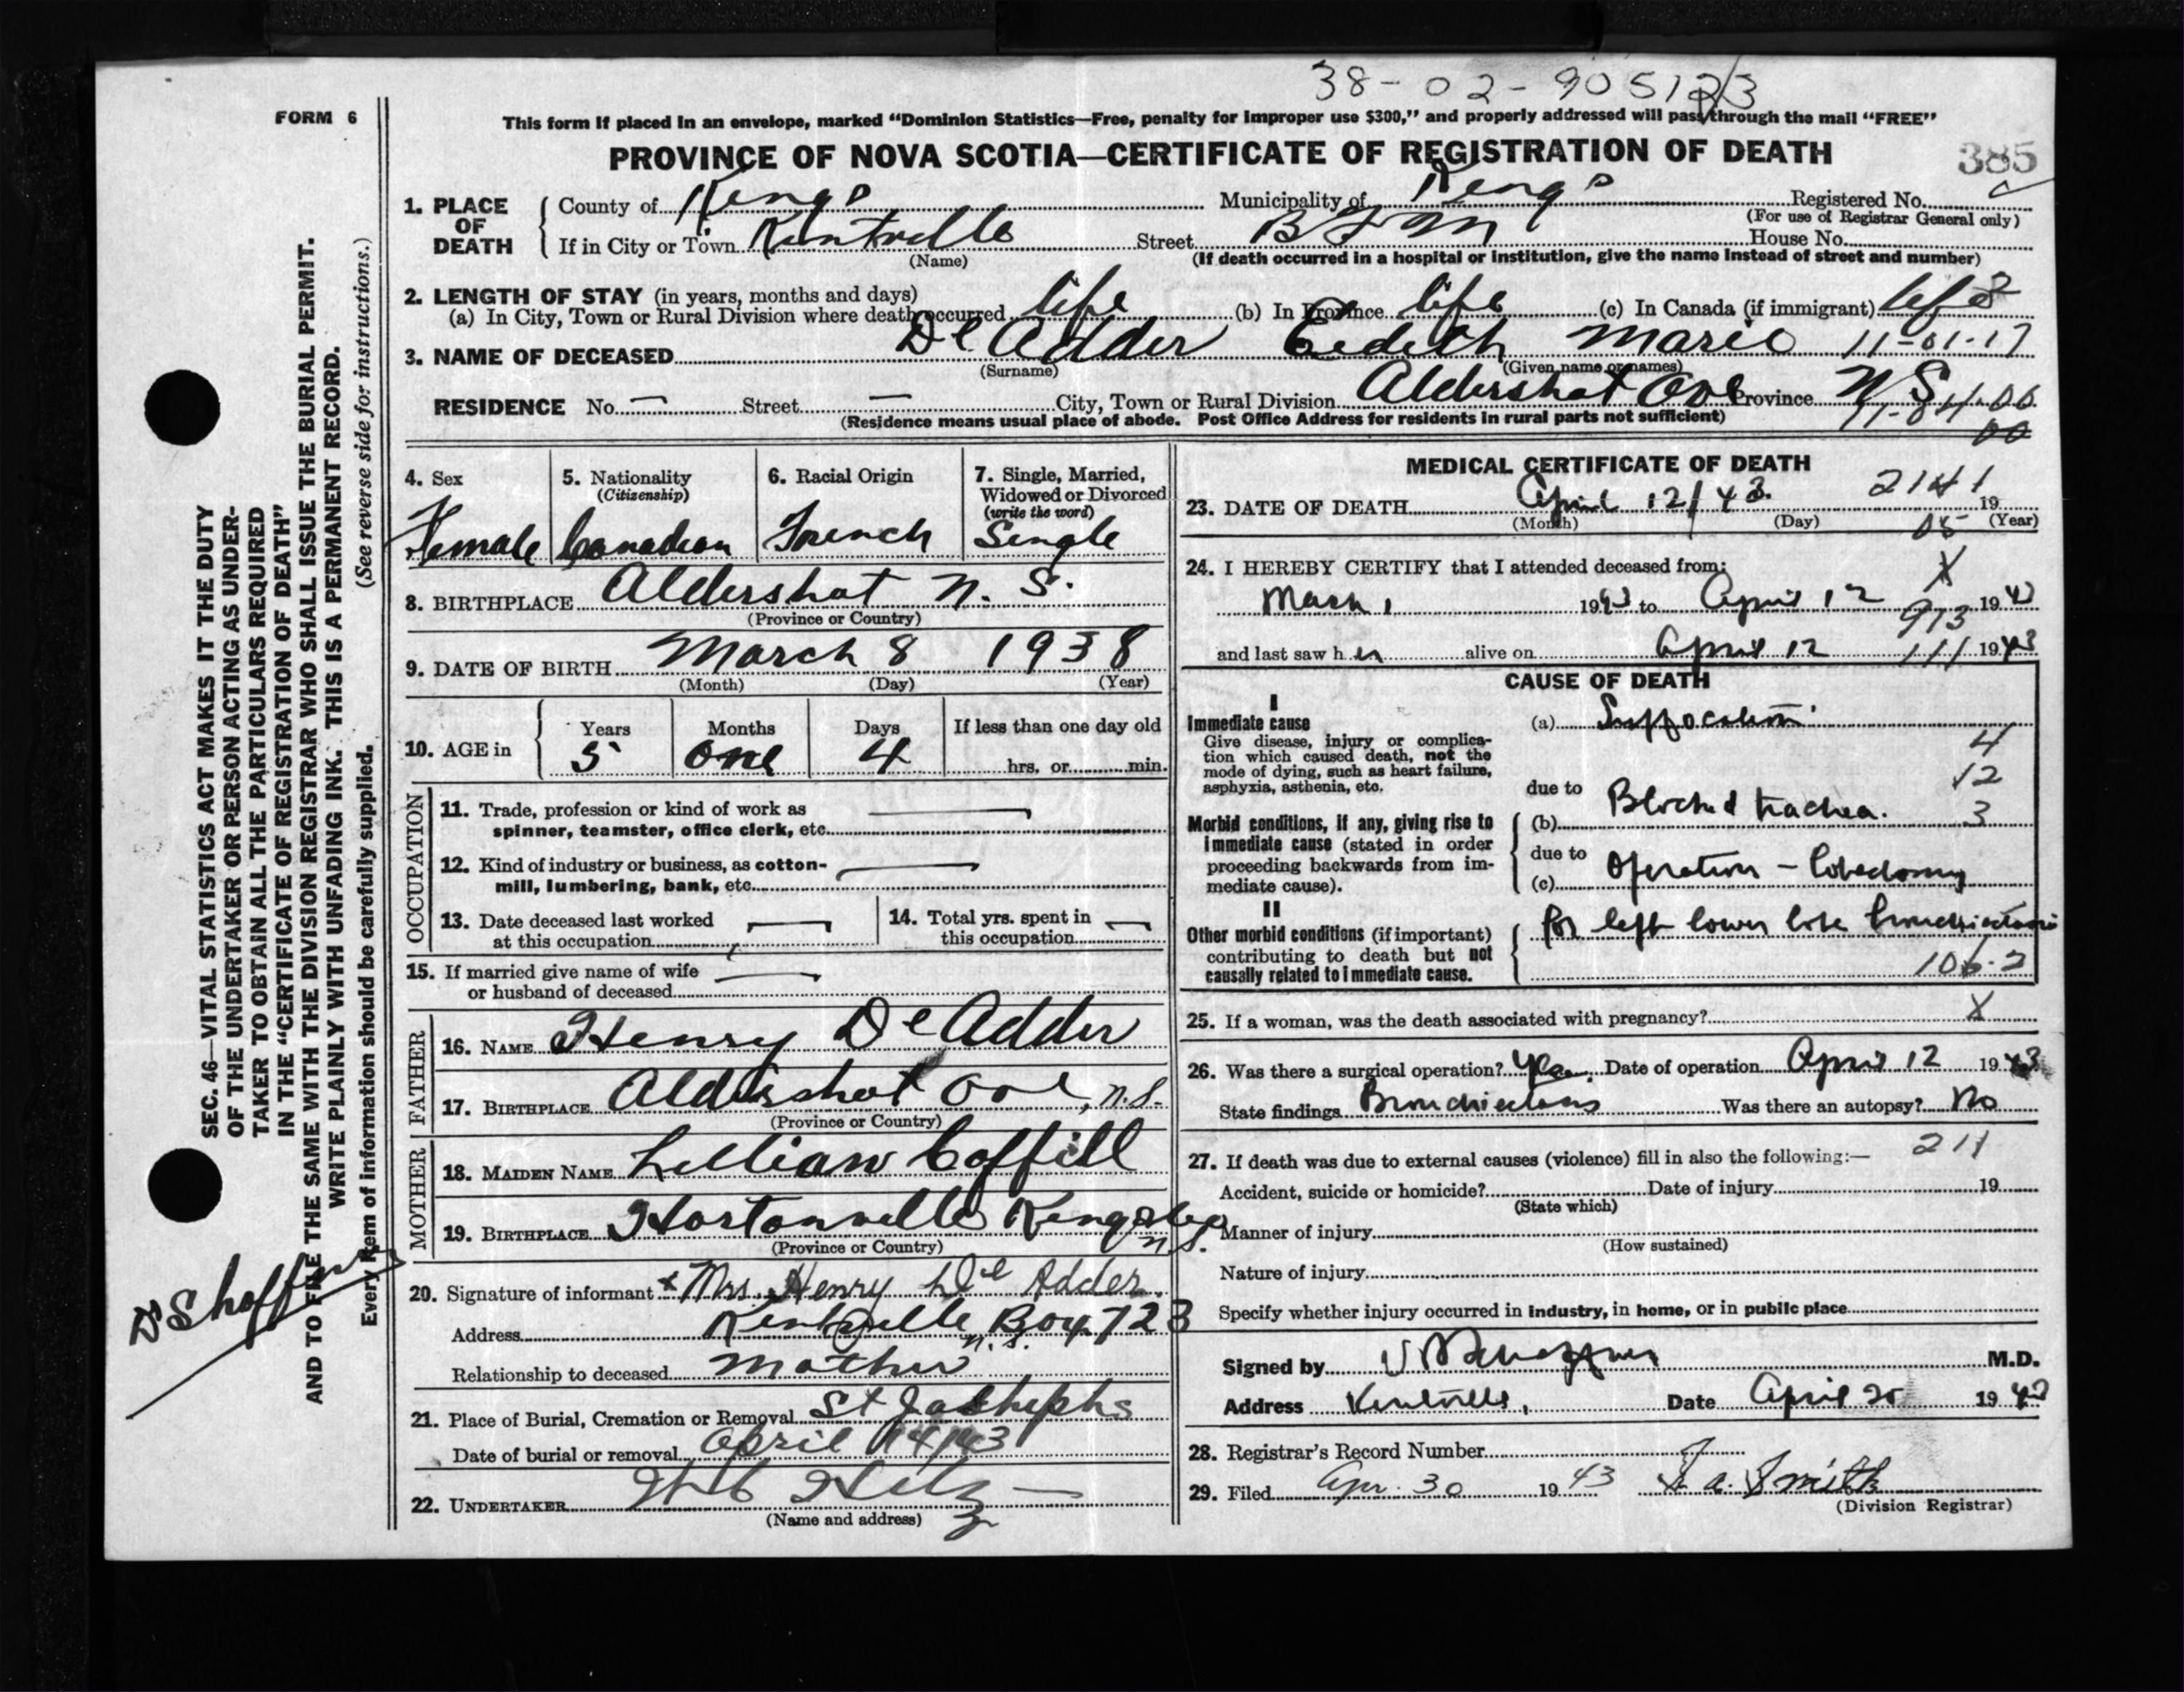 38-02-905123
FORM 6
This form if placed in an envelope, marked "Dominion Statistics—Free, penalty for improper use $300," and properly addressed will pass through the mail "FREE"
PROVINCE OF NOVA SCOTIA—CERTIFICATE OF REGISTRATION OF DEATH
385
1. PLACE OF DEATH
County of Kings Municipality of Kings Registered No.
(For use of Registrar General only)
If in City or Town Kentville Street House No.
(Name) (If death occurred in a hospital or institution, give the name instead of street and number)
2. LENGTH OF STAY (in years, months and days)
(a) In City, Town or Rural Division where death occurred life (b) In Province life (c) In Canada (if immigrant) life
3. NAME OF DECEASED De Adder Eedith Marie 11-01-17
(Surname) (Given name or names)
RESIDENCE No. — Street — City, Town or Rural Division Aldershot Province N S
(Residence means usual place of abode. Post Office Address for residents in rural parts not sufficient)
4. Sex
Female
5. Nationality
(Citizenship)
Canadian
6. Racial Origin
French
7. Single, Married,
Widowed or Divorced
(write the word)
Single
8. BIRTHPLACE Aldershot N. S.
(Province or Country)
9. DATE OF BIRTH March 8 1938
(Month) (Day) (Year)
10. AGE in
Years Months Days If less than one day old
5 one 4 hrs. or min.
OCCUPATION
11. Trade, profession or kind of work as
spinner, teamster, office clerk, etc.
12. Kind of industry or business, as cotton-
mill, lumbering, bank, etc.
13. Date deceased last worked
at this occupation
14. Total yrs. spent in
this occupation
15. If married give name of wife
or husband of deceased
FATHER
16. NAME Henry De Adder
17. BIRTHPLACE Aldershot , N.S.
(Province or Country)
MOTHER
18. MAIDEN NAME Lillian Coffill
19. BIRTHPLACE Hortonville Kings Co
N S.
(Province or Country)
20. Signature of informant x Mrs. Henry De Adder.
Address Kentville Box 723
N.S.
Relationship to deceased Mother
21. Place of Burial, Cremation or Removal St Joshephs
Date of burial or removal April 14/43
22. UNDERTAKER
(Name and address)
MEDICAL CERTIFICATE OF DEATH
2141
23. DATE OF DEATH April 12/43. 19
(Month) (Day) (Year)
05
24. I HEREBY CERTIFY that I attended deceased from: X
March 1 1943 to April 12 1943
913
and last saw her alive on April 12 1943
111
CAUSE OF DEATH
I
Immediate cause
Give disease, injury or complica-
tion which caused death, not the
mode of dying, such as heart failure,
asphyxia, asthenia, etc.
(a) Suffocation
4
12
3
due to
Morbid conditions, if any, giving rise to
immediate cause (stated in order
proceeding backwards from im-
mediate cause).
(b) Blocked trachea.
due to
(c) Operation – lobectomy
II
Other morbid conditions (if important)
contributing to death but not
causally related to immediate cause.
for left lower lobe bronchiectasis
106.2
25. If a woman, was the death associated with pregnancy? X
26. Was there a surgical operation? Yes. Date of operation April 12 1943
State findings Bronchiectasis Was there an autopsy? No
211
27. If death was due to external causes (violence) fill in also the following:—
Accident, suicide or homicide? Date of injury 19
(State which)
Manner of injury
(How sustained)
Nature of injury
Specify whether injury occurred in industry, in home, or in public place
Signed by M.D.
Address Kentville, Date April 20 1943
28. Registrar's Record Number
29. Filed Apr. 30 1943 Smith
(Division Registrar)
SEC. 46—VITAL STATISTICS ACT MAKES IT THE DUTY
OF THE UNDERTAKER OR PERSON ACTING AS UNDER-
TAKER TO OBTAIN ALL THE PARTICULARS REQUIRED
IN THE "CERTIFICATE OF REGISTRATION OF DEATH"
AND TO FILE THE SAME WITH THE DIVISION REGISTRAR WHO SHALL ISSUE THE BURIAL PERMIT.
WRITE PLAINLY WITH UNFADING INK. THIS IS A PERMANENT RECORD.
Every item of information should be carefully supplied. (See reverse side for instructions.)